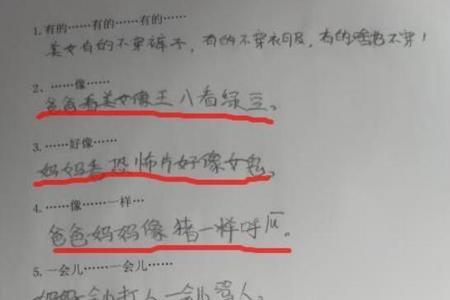 1.有的……有的……有的……
美女有的不穿裤子，有的不穿衣服，有的啥都不穿！
2、……像……
爸爸看美女像王八看绿豆。
3.……好像……
妈妈看恐怖片好像女鬼。
4.……像……一样…
爸爸妈妈像猪一样呼
5.一会儿……一会儿……
妈妈一会儿打人一会儿骂人。